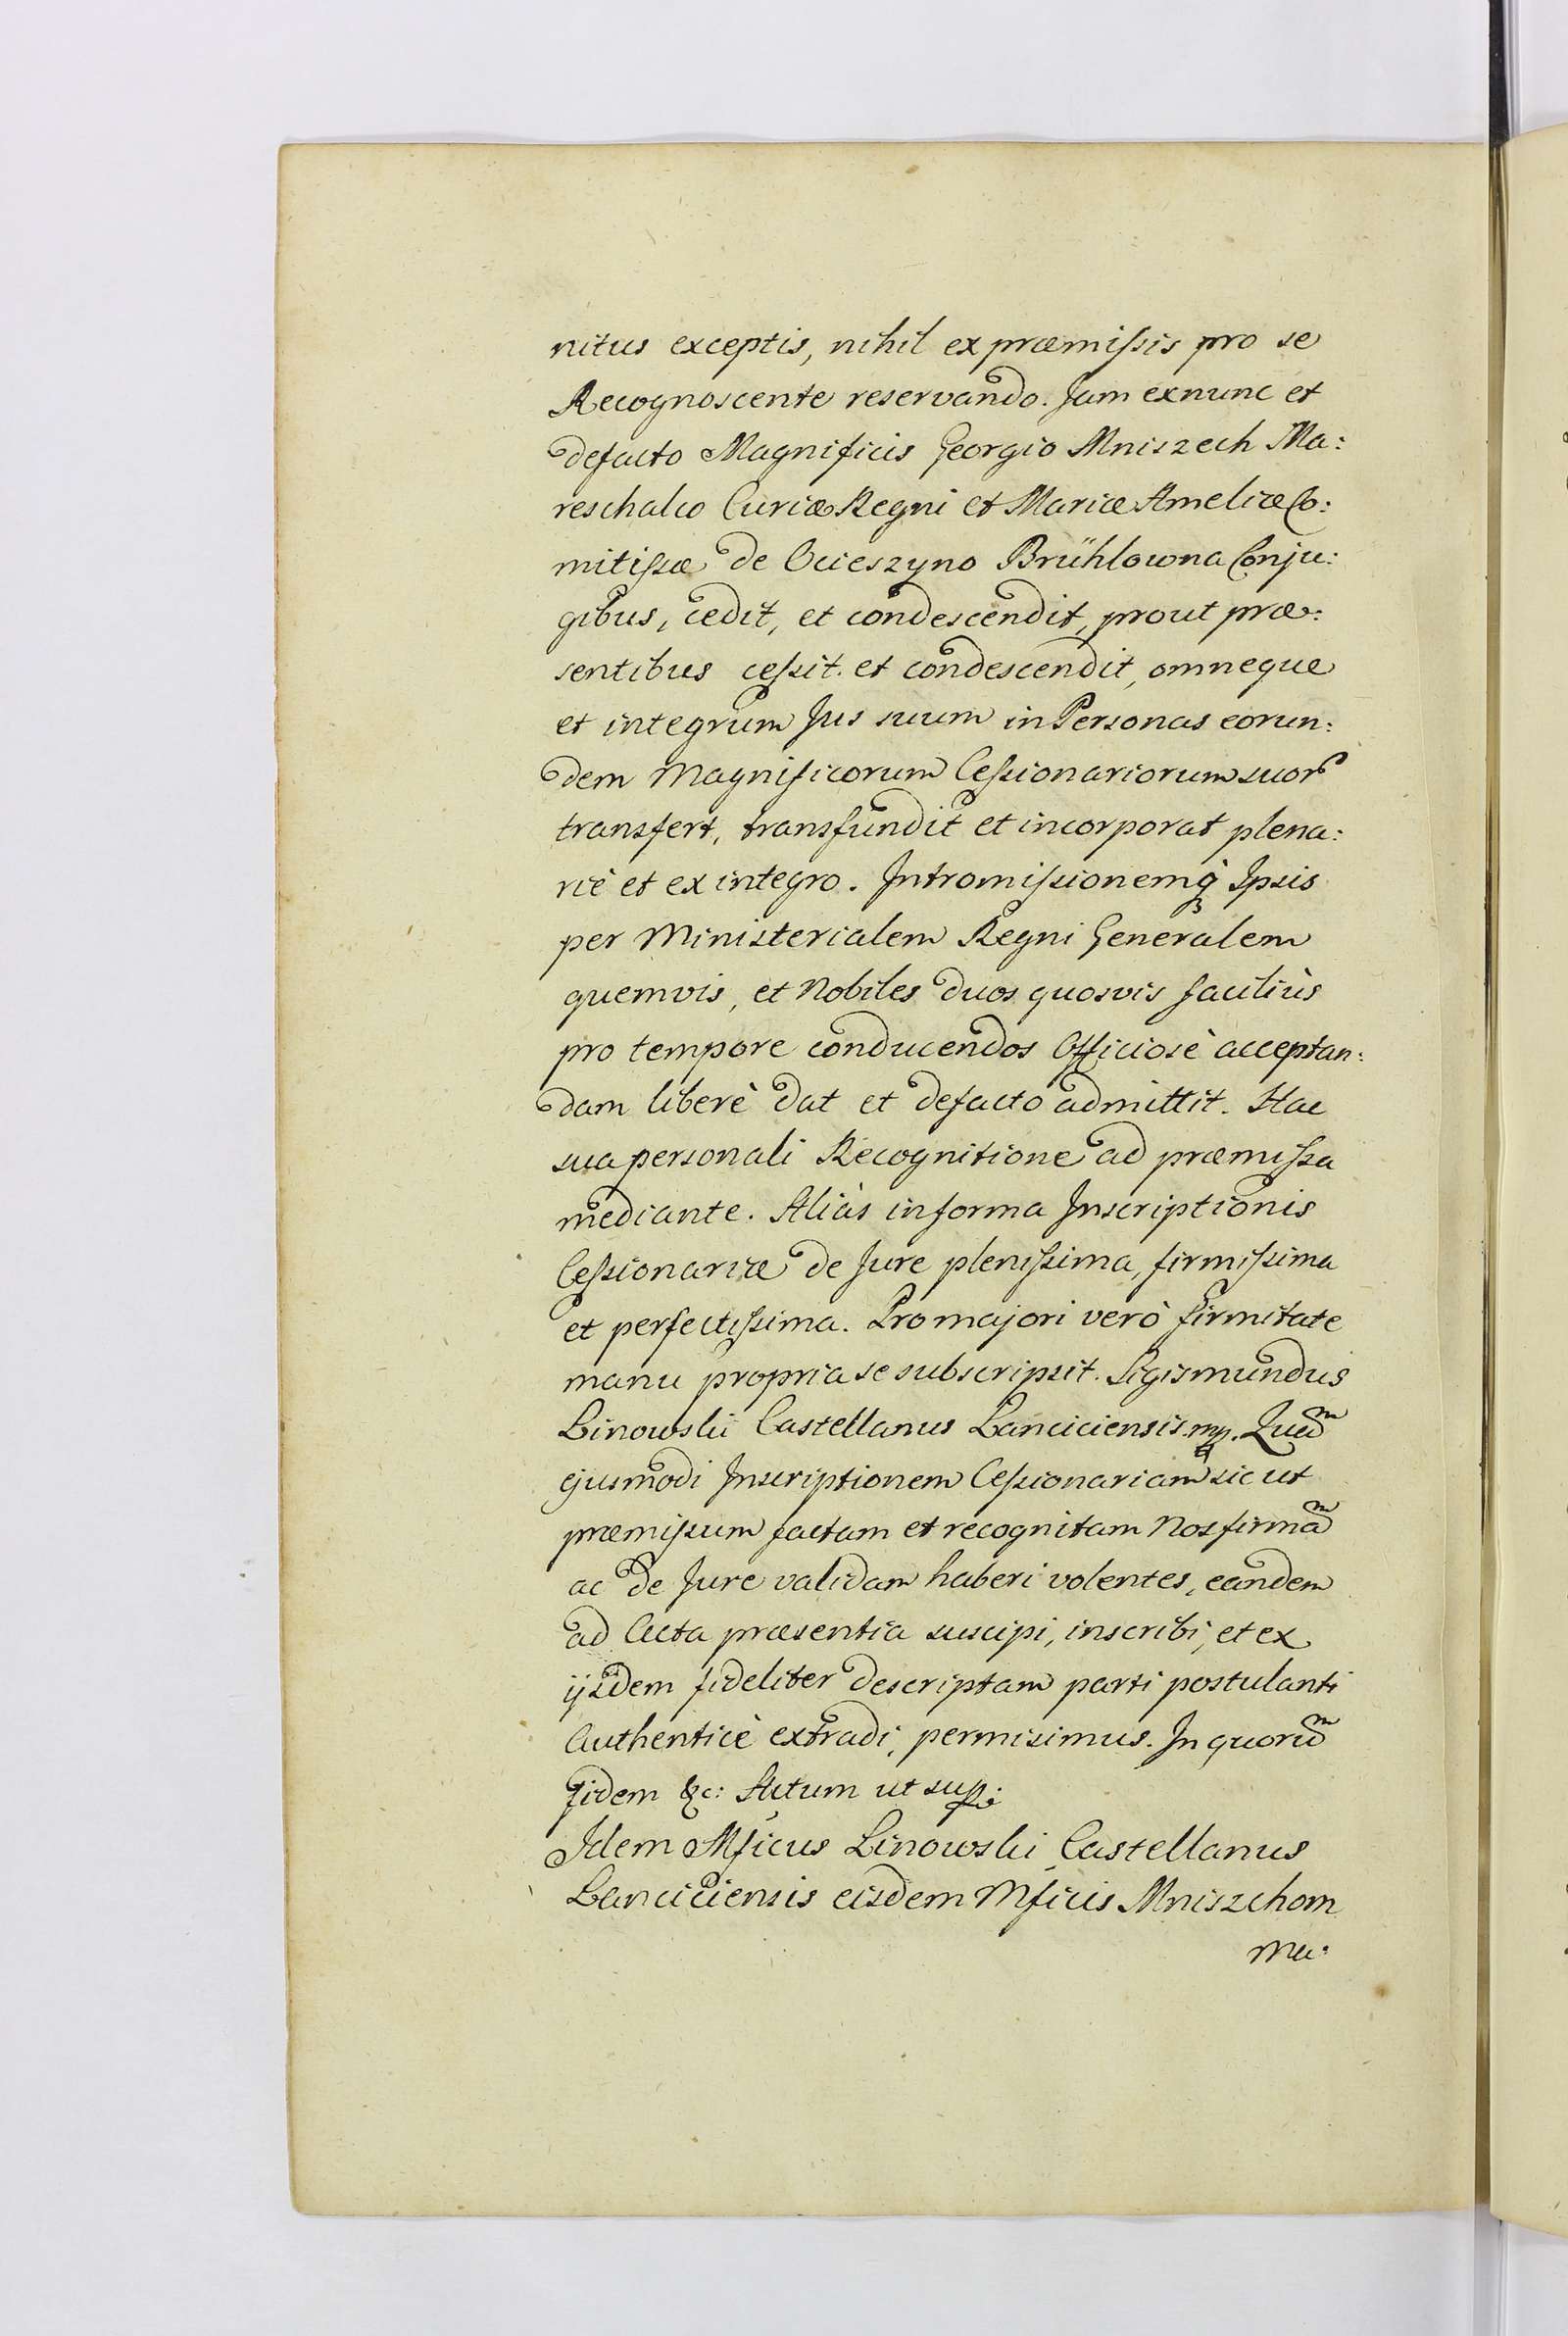 nitus exceptis, nihil ex præmissis pro se
Recognoscente reservando. Jam exnunc et
defacto Magnificis Georgio Mniszech Ma:
reschalco Curiæ Regni et Mariæ Ameliæ Co:
mitissæ de Ocieszyno Brühlowna Conju:
gibus, cedit, et condescendit, prout præ:
sentibus cessit et condescendit, omneque
et integrum Jus suum in Personas eorun:
dem Magnificorum Cessionariorum suor
transfert, transfundit et incorporat plena:
riè et ex integro. Intromissionemq́ Ipsis
per Ministerialem Regni Generalem
quemvis, et Nobiles duos quosvis faciliùs
pro tempore conducendos Officiosè acceptan:
dam liberè dat et defacto admittit. Hac
sua personali Recognitione ad præmissa
mediante. Aliàs in forma Inscriptionis
Cessionariæ de Jure plenissima, firmissima
et perfectissima. Pro majori verò firmitate
manu propria se subscripsit. Sigismundus
Linowski Castellanus Lanciciensis mp. Quãm
ejusmodi Inscriptionem Cessionariam sic ut
præmissum factam et recognitam Nos firmãm
ac de Jure validam haberi volentes, eandem
ad Acta præsentia suscipi, inscribi, et ex
ijsdem fideliter descriptam parti postulanti
Authenticè extradi, permisimus. In quorũm
fidem &c: Actum ut supˢ
Idem Mficus Linowski Castellanus
Lanciciensis eisdem Mficis Mniszchom
Ma: